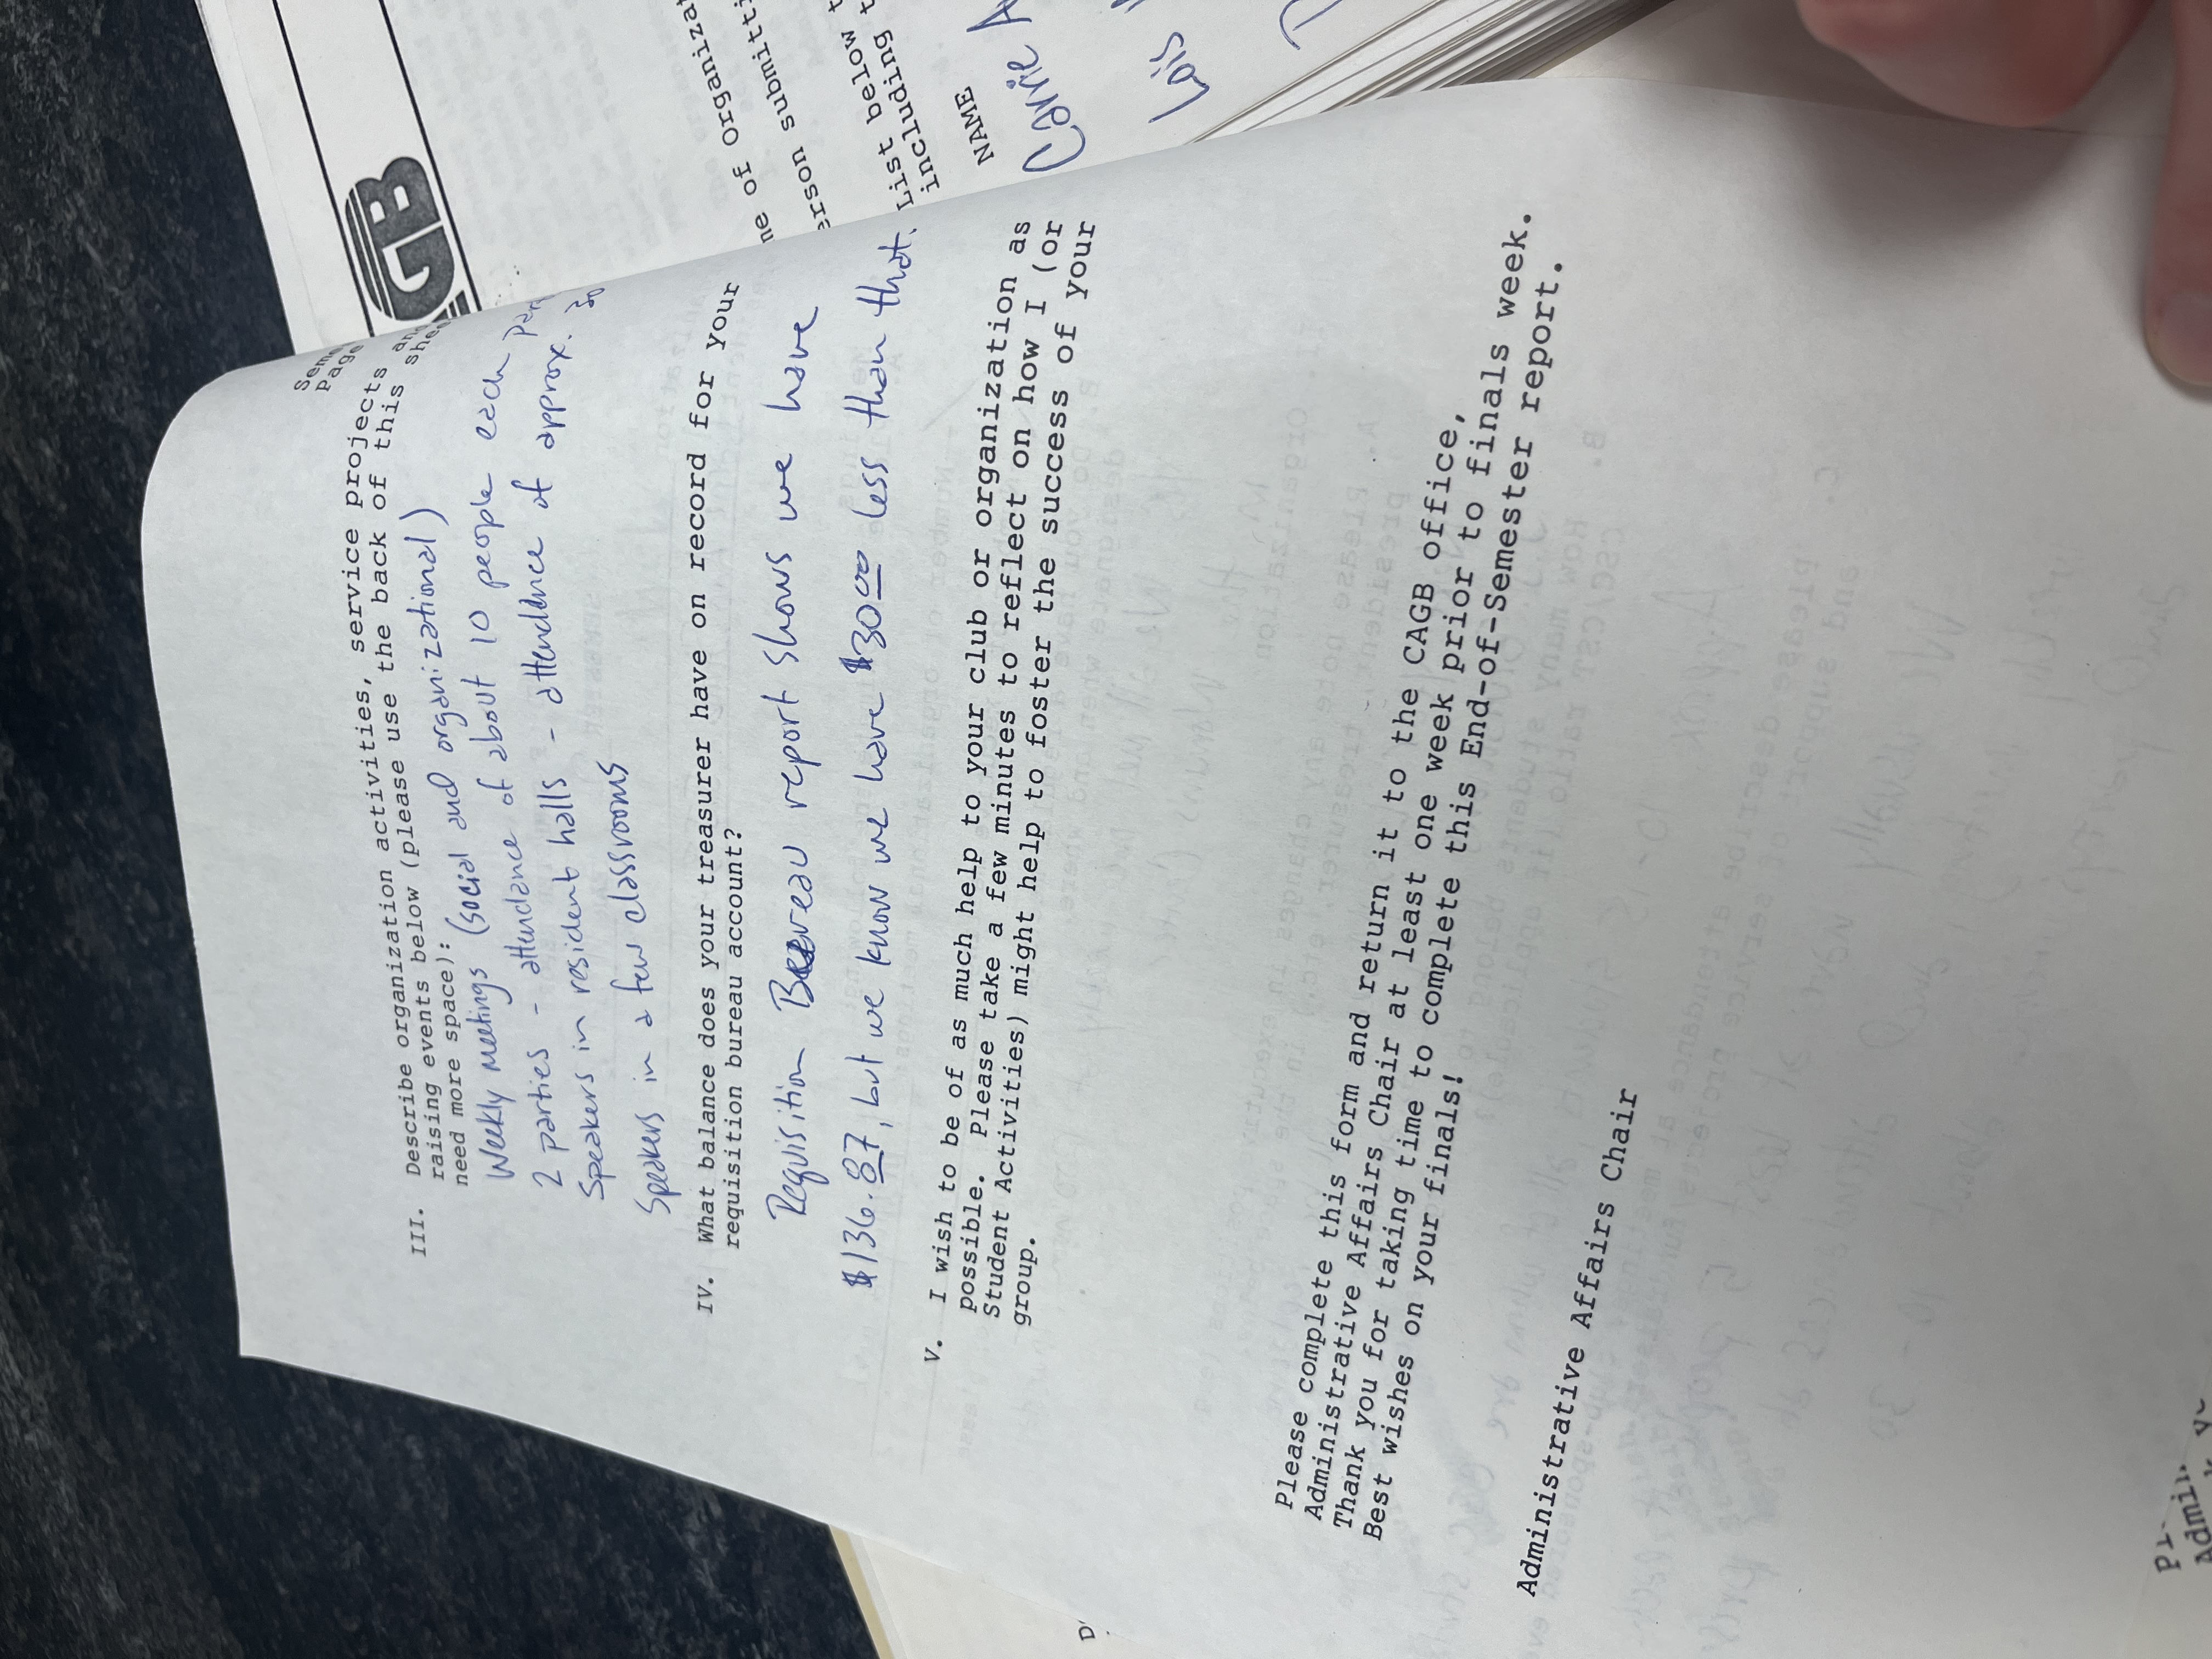 Seme
Page
III. Describe organization activities, service projects an
raising events below (please use the back of this shee
need more space):
Weekly meetings (social and organizational)
2 parties - attendance of about 10 people each
Speakers in resident halls - attendance of approx. 30
Speakers in a few classrooms
IV. What balance does your treasurer have on record for your
requisition bureau account?
Requisition Bureau report shows we have
$136.87, but we know we have $30.00 less than that.
V. I wish to be of as much help to your club or organization as
possible. Please take a few minutes to reflect on how I (or
Student Activities) might help to foster the success of your
group.
Please complete this form and return it to the CAGB office,
Administrative Affairs Chair at least one week prior to finals week.
Thank you for taking time to complete this End-of-Semester report.
Best wishes on your finals!
Administrative Affairs Chair
GB
me of Organizat
erson submitti
List below t
including t
NAME
Carrie A
Lois
Admin